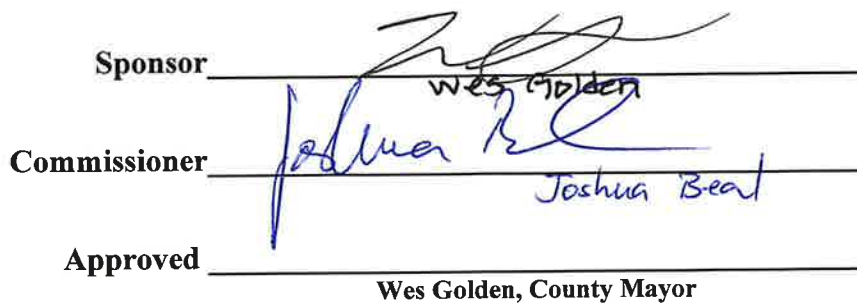 Sponsor
Wes Golden
Commissioner Joshua
Joshua Beal
Approved
Wes Golden, County Mayor